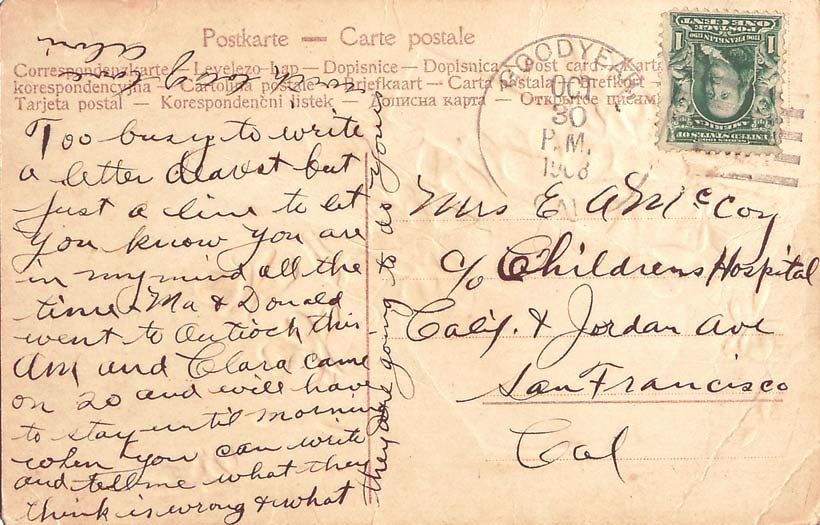 Postkarte — Carte postale
Correspondenzkarte — Levelezo-Lap — Dopisnice — Dopisnica — Post card — Karta
korespondencyjna — Cartolina postale — Briefkaart — Carta postala — Brefkort
Tarjeta postal — Korespondenční listek — Дописна карта — Открытое письмо
GOODYEAR
OCT
30
P.M.
1908
CAL
SERIES 1902
UNITED STATES OF
AMERICA
1706 FRANKLIN 1790
POSTAGE
1 ONE CENT 1
Too busy to write
a letter dearest but
just a line to let
you know you are
in my mind all the
time. Ma & Donald
went to Antioch this
AM and Clara came
on 20 and will have
to stay until morning
when you can write
and tell me what they
think is wrong & what
they are going to do Yours
with love
Mrs E A McCoy
c/o Childrens Hospital
Calif. & Jordan Ave
San Francisco
Cal